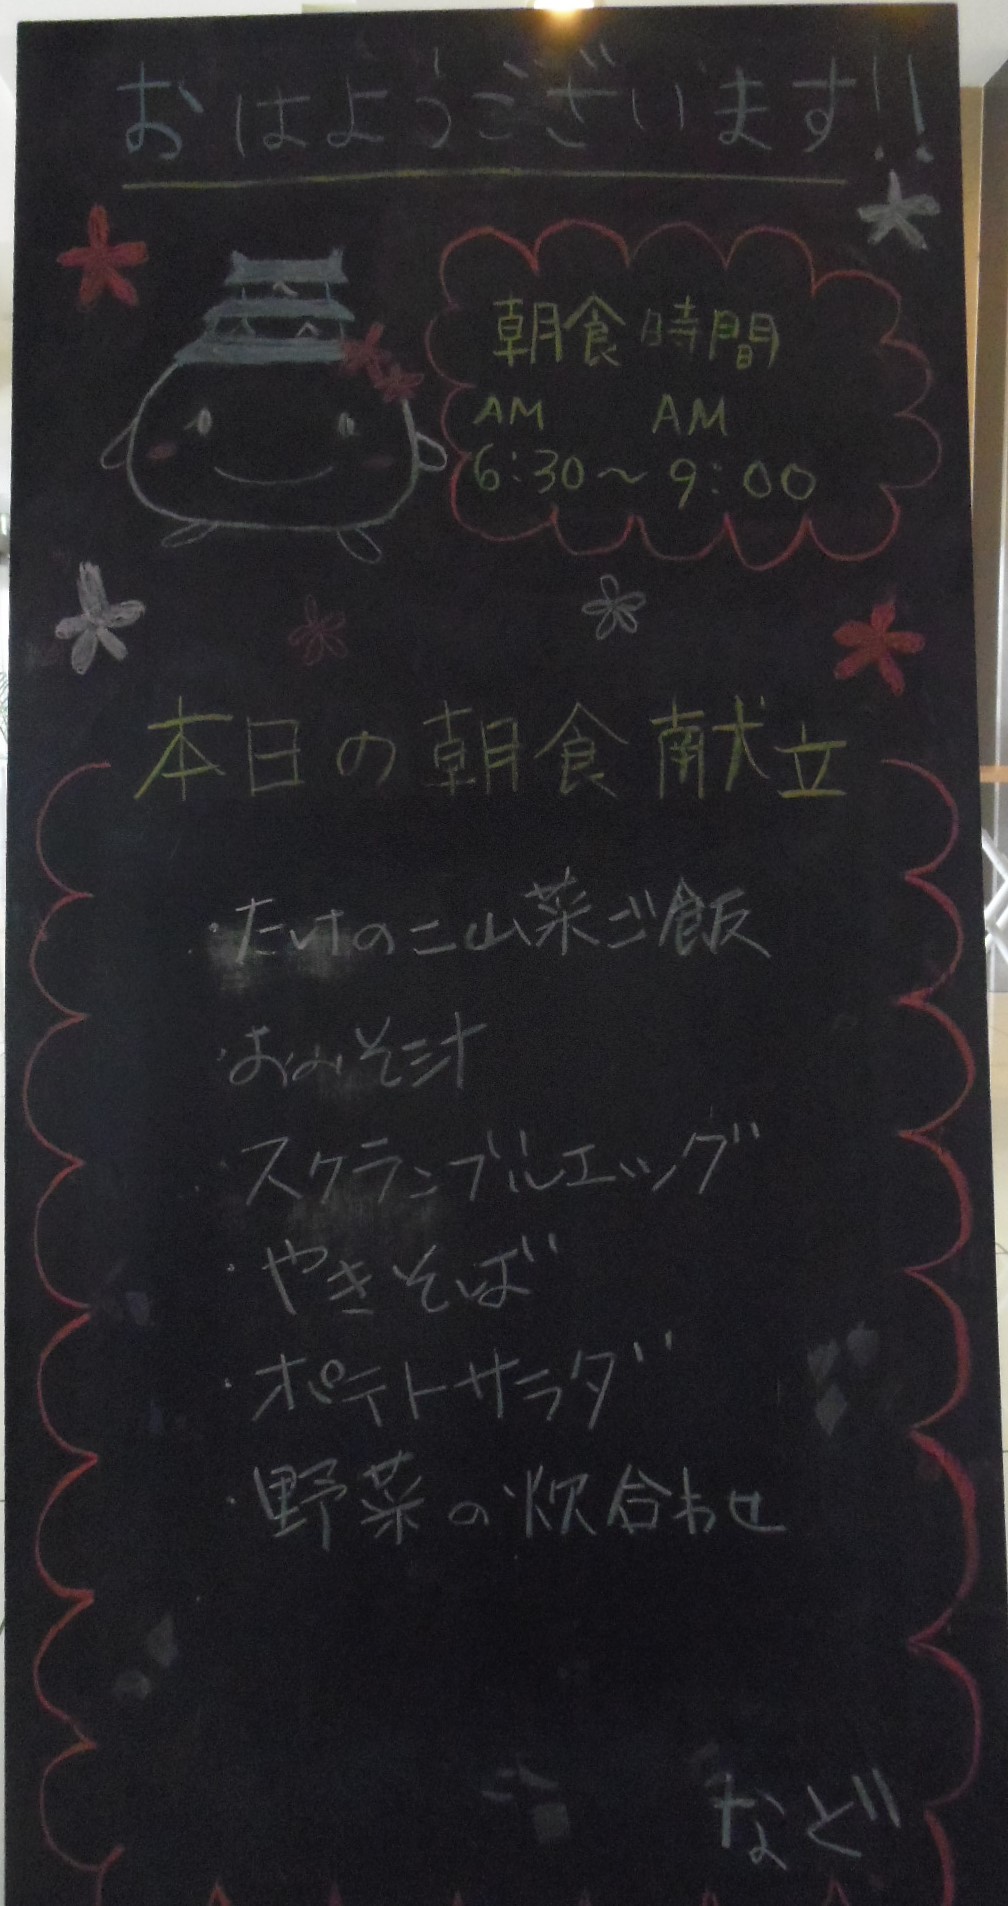 おはようございます!!
朝食時間
AM AM
6:30～9:00
本日の朝食献立
・たけのこ山菜ご飯
・おみそ汁
・スクランブルエッグ
・やきそば
・ポテトサラダ
・野菜の炊合わせ
など